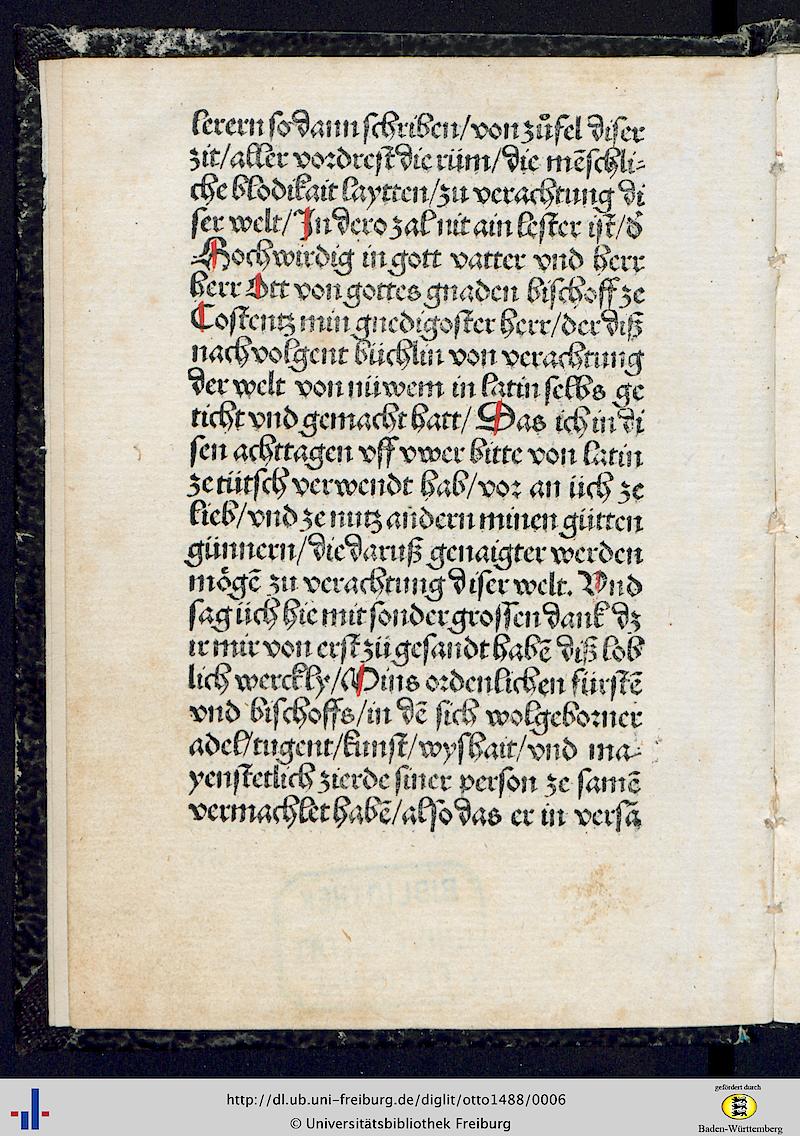 lerern so dann schriben/von zůfel diser
zit/aller vordrest die rüm/die mēschli-
che blodikait laytten/zu verachtung di
ser welt/In dero zal nit ain lester ist/d̄
Hochwirdig in gott vatter vnd herr
herr Ott von gottes gnaden bischoff ze
Costentz min gnedigoster herr/der diß
nachvolgent büchlin von verachtung
der welt von nüwem in latin selbs ge
ticht vnd gemacht hatt/Das ich in di
sen achttagen vff vwer bitte von latin
ze tütsch verwendt hab/vor an üch ze
lieb/vnd ze nutz andern minen gütten
günnern/die daruß genaigter werden
mögē zu verachtung diser welt. Vnd
sag üch hie mit sonder grossen dank dz
ir mir von erst zü gesandt habē diß lob
lich werckly/Mins ordenlichen fürstē
vnd bischoffs/in dē sich wolgeborner
adel/tugent/kunst/wyshait/vnd ma-
yenstetlich zierde siner person ze samē
vermachlet habē/also das er in versā
http://dl.ub.uni-freiburg.de/diglit/otto1488/0006
© Universitätsbibliothek Freiburg
gefördert durch
Baden-Württemberg